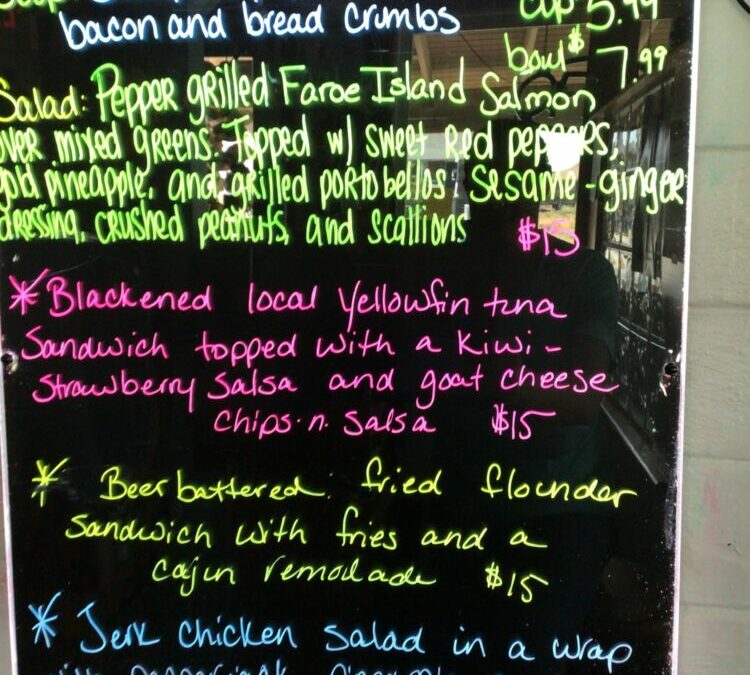 cup 5.99
bacon and bread crumbs
bowl $7.99
Salad: Pepper grilled Faroe Island Salmon
over mixed greens. Topped w/ sweet red peppers,
pineapple, and grilled portobellos. Sesame-ginger
dressing, crushed peanuts, and scallions $15
*Blackened local Yellowfin tuna
Sandwich topped with a Kiwi-
Strawberry Salsa and goat cheese
chips.n. salsa $15
* Beer battered. fried flounder
sandwich with fries and a
cajun remoulade $15
* Jerk chicken salad in a wrap